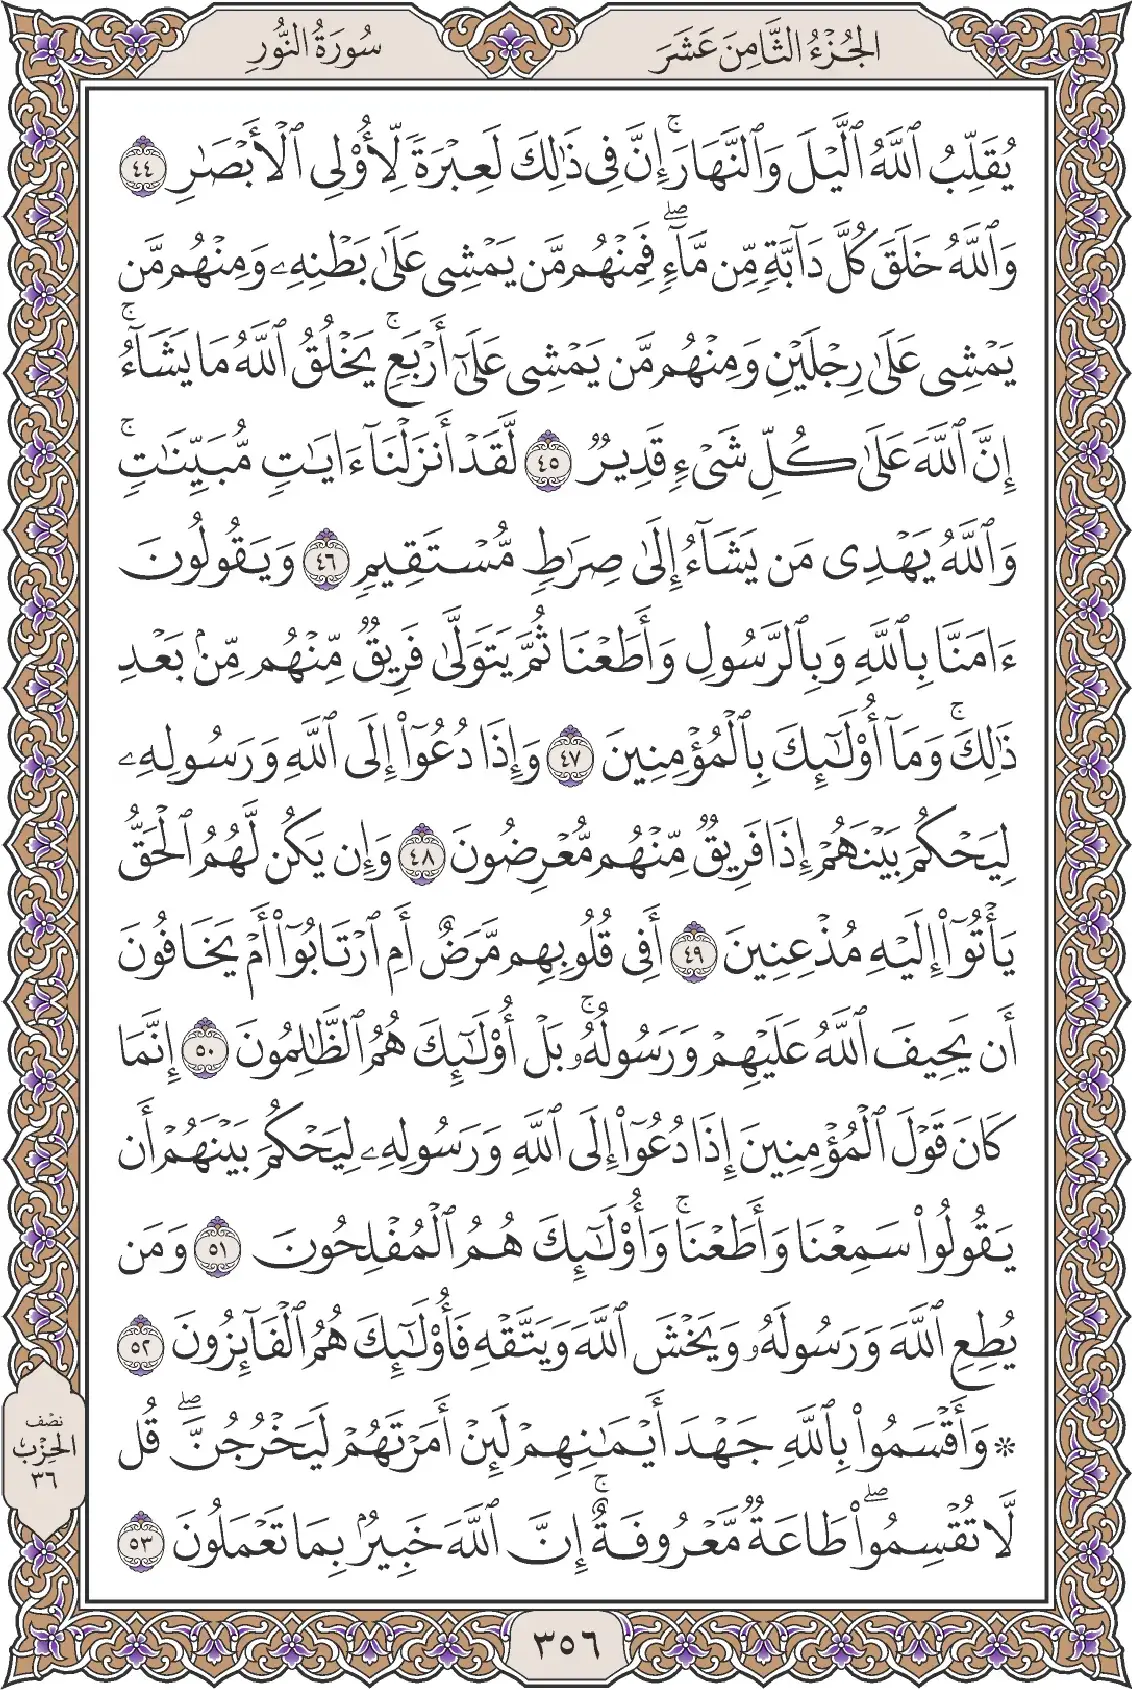 الجُزْءُ الثَّامِنَ عَشَرَ
سُورَةُ النُّورِ
يُقَلِّبُ ٱللَّهُ ٱلَّيْلَ وَٱلنَّهَارَۚ إِنَّ فِى ذَٰلِكَ لَعِبْرَةً لِّأُوْلِى ٱلْأَبْصَٰرِ ٤٤
وَٱللَّهُ خَلَقَ كُلَّ دَآبَّةٍ مِّن مَّآءٍۖ فَمِنْهُم مَّن يَمْشِى عَلَىٰ بَطْنِهِۦ وَمِنْهُم مَّن
يَمْشِى عَلَىٰ رِجْلَيْنِ وَمِنْهُم مَّن يَمْشِى عَلَىٰٓ أَرْبَعٍۚ يَخْلُقُ ٱللَّهُ مَا يَشَآءُۚ
إِنَّ ٱللَّهَ عَلَىٰ كُلِّ شَىْءٍ قَدِيرٌ ٤٥ لَّقَدْ أَنزَلْنَآ ءَايَٰتٍ مُّبَيِّنَٰتٍۚ
وَٱللَّهُ يَهْدِى مَن يَشَآءُ إِلَىٰ صِرَٰطٍ مُّسْتَقِيمٍ ٤٦ وَيَقُولُونَ
ءَامَنَّا بِٱللَّهِ وَبِٱلرَّسُولِ وَأَطَعْنَا ثُمَّ يَتَوَلَّىٰ فَرِيقٌ مِّنْهُم مِّنۢ بَعْدِ
ذَٰلِكَۚ وَمَآ أُوْلَٰٓئِكَ بِٱلْمُؤْمِنِينَ ٤٧ وَإِذَا دُعُوٓاْ إِلَى ٱللَّهِ وَرَسُولِهِۦ
لِيَحْكُمَ بَيْنَهُمْ إِذَا فَرِيقٌ مِّنْهُم مُّعْرِضُونَ ٤٨ وَإِن يَكُن لَّهُمُ ٱلْحَقُّ
يَأْتُوٓاْ إِلَيْهِ مُذْعِنِينَ ٤٩ أَفِى قُلُوبِهِم مَّرَضٌ أَمِ ٱرْتَابُوٓاْ أَمْ يَخَافُونَ
أَن يَحِيفَ ٱللَّهُ عَلَيْهِمْ وَرَسُولُهُۥۚ بَلْ أُوْلَٰٓئِكَ هُمُ ٱلظَّٰلِمُونَ ٥٠ إِنَّمَا
كَانَ قَوْلَ ٱلْمُؤْمِنِينَ إِذَا دُعُوٓاْ إِلَى ٱللَّهِ وَرَسُولِهِۦ لِيَحْكُمَ بَيْنَهُمْ أَن
يَقُولُواْ سَمِعْنَا وَأَطَعْنَاۚ وَأُوْلَٰٓئِكَ هُمُ ٱلْمُفْلِحُونَ ٥١ وَمَن
يُطِعِ ٱللَّهَ وَرَسُولَهُۥ وَيَخْشَ ٱللَّهَ وَيَتَّقْهِ فَأُوْلَٰٓئِكَ هُمُ ٱلْفَآئِزُونَ ٥٢
۞ وَأَقْسَمُواْ بِٱللَّهِ جَهْدَ أَيْمَٰنِهِمْ لَئِنْ أَمَرْتَهُمْ لَيَخْرُجُنَّۖ قُل
لَّا تُقْسِمُواْۖ طَاعَةٌ مَّعْرُوفَةٌۚ إِنَّ ٱللَّهَ خَبِيرٌۢ بِمَا تَعْمَلُونَ ٥٣
نصف
الحزب
٣٦
٣٥٦